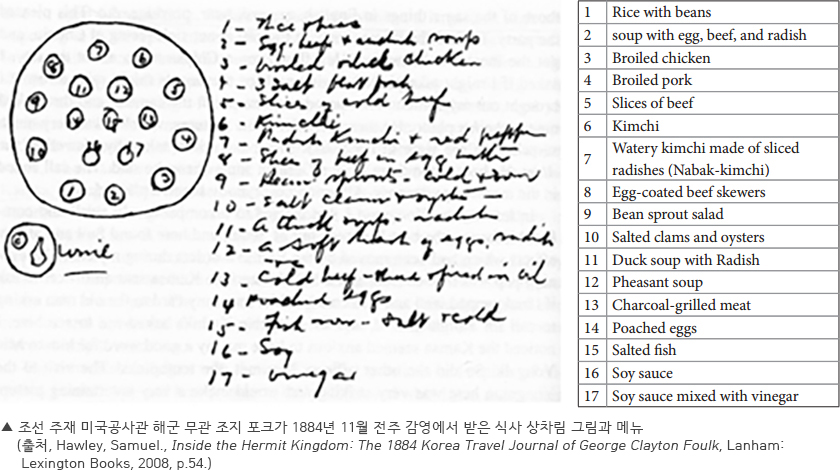 7
8 6
11 12 5
9
14 15 13
10 4
16 17
1 2 3
1
2 - Egg, beef & radish soup
3 - chicken
4 - 3 salt pork
5 - Slices of cold beef
6 -
7 Radish & red pepper
8 - Slices of beef in egg
9 - sprouts - cold
10 - Salt clams & oysters -
11 - soup - radish
12 - A soft of eggs, radish
13 - Cold beef - fried in oil
14 Poached eggs
15 - Fish - salt & cold
16 - Soy
17 - vinegar
1 Rice with beans
2 soup with egg, beef, and radish
3 Broiled chicken
4 Broiled pork
5 Slices of beef
6 Kimchi
7 Watery kimchi made of sliced
radishes (Nabak-kimchi)
8 Egg-coated beef skewers
9 Bean sprout salad
10 Salted clams and oysters
11 Duck soup with Radish
12 Pheasant soup
13 Charcoal-grilled meat
14 Poached eggs
15 Salted fish
16 Soy sauce
17 Soy sauce mixed with vinegar
▲ 조선 주재 미국공사관 해군 무관 조지 포크가 1884년 11월 전주 감영에서 받은 식사 상차림 그림과 메뉴
(출처, Hawley, Samuel., Inside the Hermit Kingdom: The 1884 Korea Travel Journal of George Clayton Foulk, Lanham:
Lexington Books, 2008, p.54.)